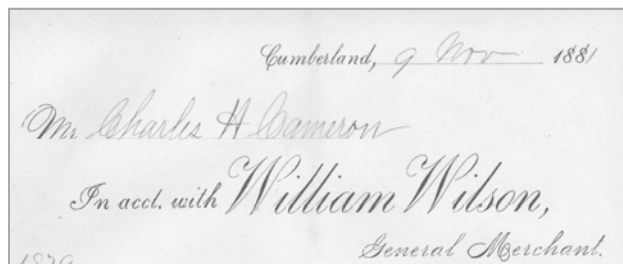 Cumberland, 9 Nov 1881
Mr Charles H Cameron
In acct. with William Wilson,
General Merchant.
1879